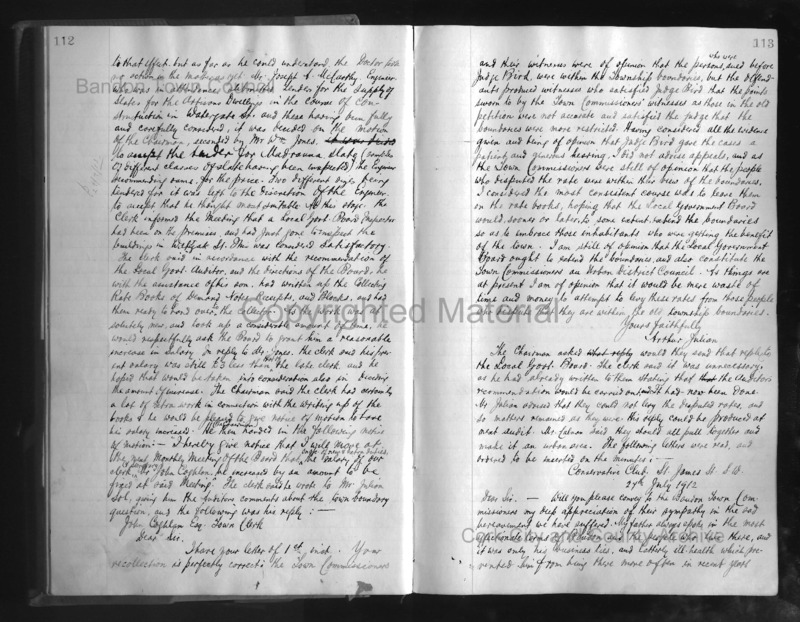 112
to that effect. but as far as he could understand, the Doctor
Mr. Joseph S. McCarthy, Engineer
Tender for the supply of
Slates for the Artisans Dwellings in the course of Con-
struction in Watergate St. and these having been fully
and carefully considered, it was decided on the motion
of the Chairman, seconded by Mr Wm Jones.
to accept the tender for Madranna slates
of different classes of slate having been inspected, the Engineer
recommending same for the price. Two different days being
tendered for it was left to the discretion of the Engineer
to accept that he thought most suitable. At this stage, the
Clerk informed the Meeting that a Local Govt Board Inspector
had been on the premises, and had just gone to inspect the
buildings in Watergate St. This was considered satisfactory.
The Clerk said in accordance with the recommendation of
the Local Govt. Auditor, and the directions of the Board, he
with the assistance of his son, had written up the Collecting
Rate Books of Demand Notes, Receipts, and Blocks, and had
them ready to hand over to the Collector. As the work was ab-
solutely new, and took up a considerable amount of time, he
would respectfully ask the Board to grant him a reasonable
increase in salary. In reply to Mr. Jones. the clerk said his pres-
ent salary was still £5 less than the late clerk, and he
hoped that would be taken into consideration also in deciding
the amount of increase. The Chairman said the clerk had certainly
a lot of extra work in connection with the writing up of the
books & he would be pleased to give notice of motion to have
his salary increased. He then handed in the following notice
of motion:— I hereby give notice that I will move at
the next Monthly Meeting of the Board that the salary of our
clerk, Mr John Coghlan, be increased by an amount to be
fixed at said Meeting". The clerk said he wrote to Mr. Julian
Sol, giving him the Auditors comments about the town boundary
question, and the following was his reply:—
John Coghlan Esq Town Clerk
Dear Sir.
I have your letter of 1st inst. Your
recollection is perfectly correct: the Town Commissioners
113
and their witnesses were of opinion that the persons who were sued before
Judge Bird, were within the Township boundaries, but the defend-
ants produced witnesses who satisfied Judge Bird that the points
sworn to by the Town Commissioners' witnesses as those in the old
petition were not accurate and satisfied the judge that the
boundaries were more restricted. Having considered all the evidence
given and being of opinion that Judge Bird gave the cases a
patient, and generous hearing, I did not advise appeals, and as
the Town Commissioners were still of opinion that the people
who disputed the rate were within this town of the boundaries.
I considered the most consistent course was to leave them
on the rate books, hoping that the Local Government Board
would, sooner or later, to some extent extend the boundaries
so as to embrace those inhabitants who were getting the benefit
of the town. I am still of opinion that the Local Government
Board ought to extend the boundaries, and also constitute the
Town Commissioners an Urban District Council. As things are
at present I am of opinion that it would be mere waste of
time and money to attempt to levy these rates from those people
who dispute that they are within the old township boundaries.
Yours faithfully
Arthur Julian
The Chairman asked what reply would they send that reply to
the Local Govt. Board. The Clerk said it was unnecessary.
as he had already written to them stating that the Auditors
recommendation would be carried out and it had now been done.
Mr Julian advises that they could not levy the disputed rates, and
so matters remained as they were. His reply could be produced at
next audit. Mr. said they should all pull together and
make it an urban area. The following letters were read, and
ordered to be inserted on the minutes:—
Conservative Club. St. James St. S.W.
27th July 1912
Dear Sir. — Will you please convey to the Bandon Town Com-
missioners my deep appreciation of their sympathy in the sad
bereavement we have suffered. My father always spoke in the most
affectionate terms of Bandon and the people who live there, and
it was only his business ties, and latterly ill-health which pre-
vented him from being there more often in recent years
Bandon Town Council
Copyrighted Material
Cork City and County Archive